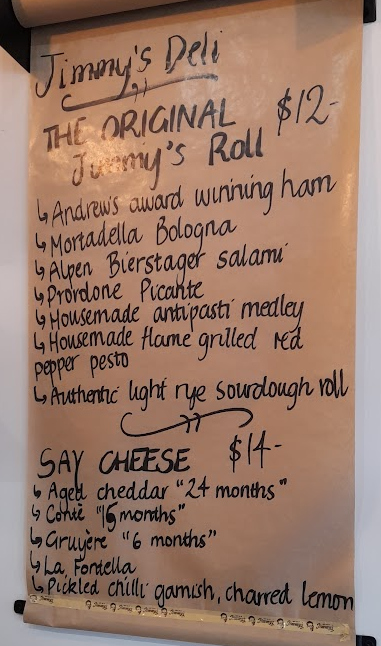 Jimmy's Deli
THE ORIGINAL $12-
Jimmy's Roll
↳ Andrews award winning ham
↳ Mortadella Bologna
↳ Alpen Bierstager salami
↳ Provolone Picante
↳ Housemade antipasti medley
↳ Housemade flame grilled red
pepper pesto
↳ Authentic light rye sourdough roll
SAY CHEESE $14-
↳ Aged cheddar "24 months"
↳ Comtè "15 months"
↳ Gruyère "6 months"
↳ La Fontella
↳ Pickled chilli garnish, charred lemon